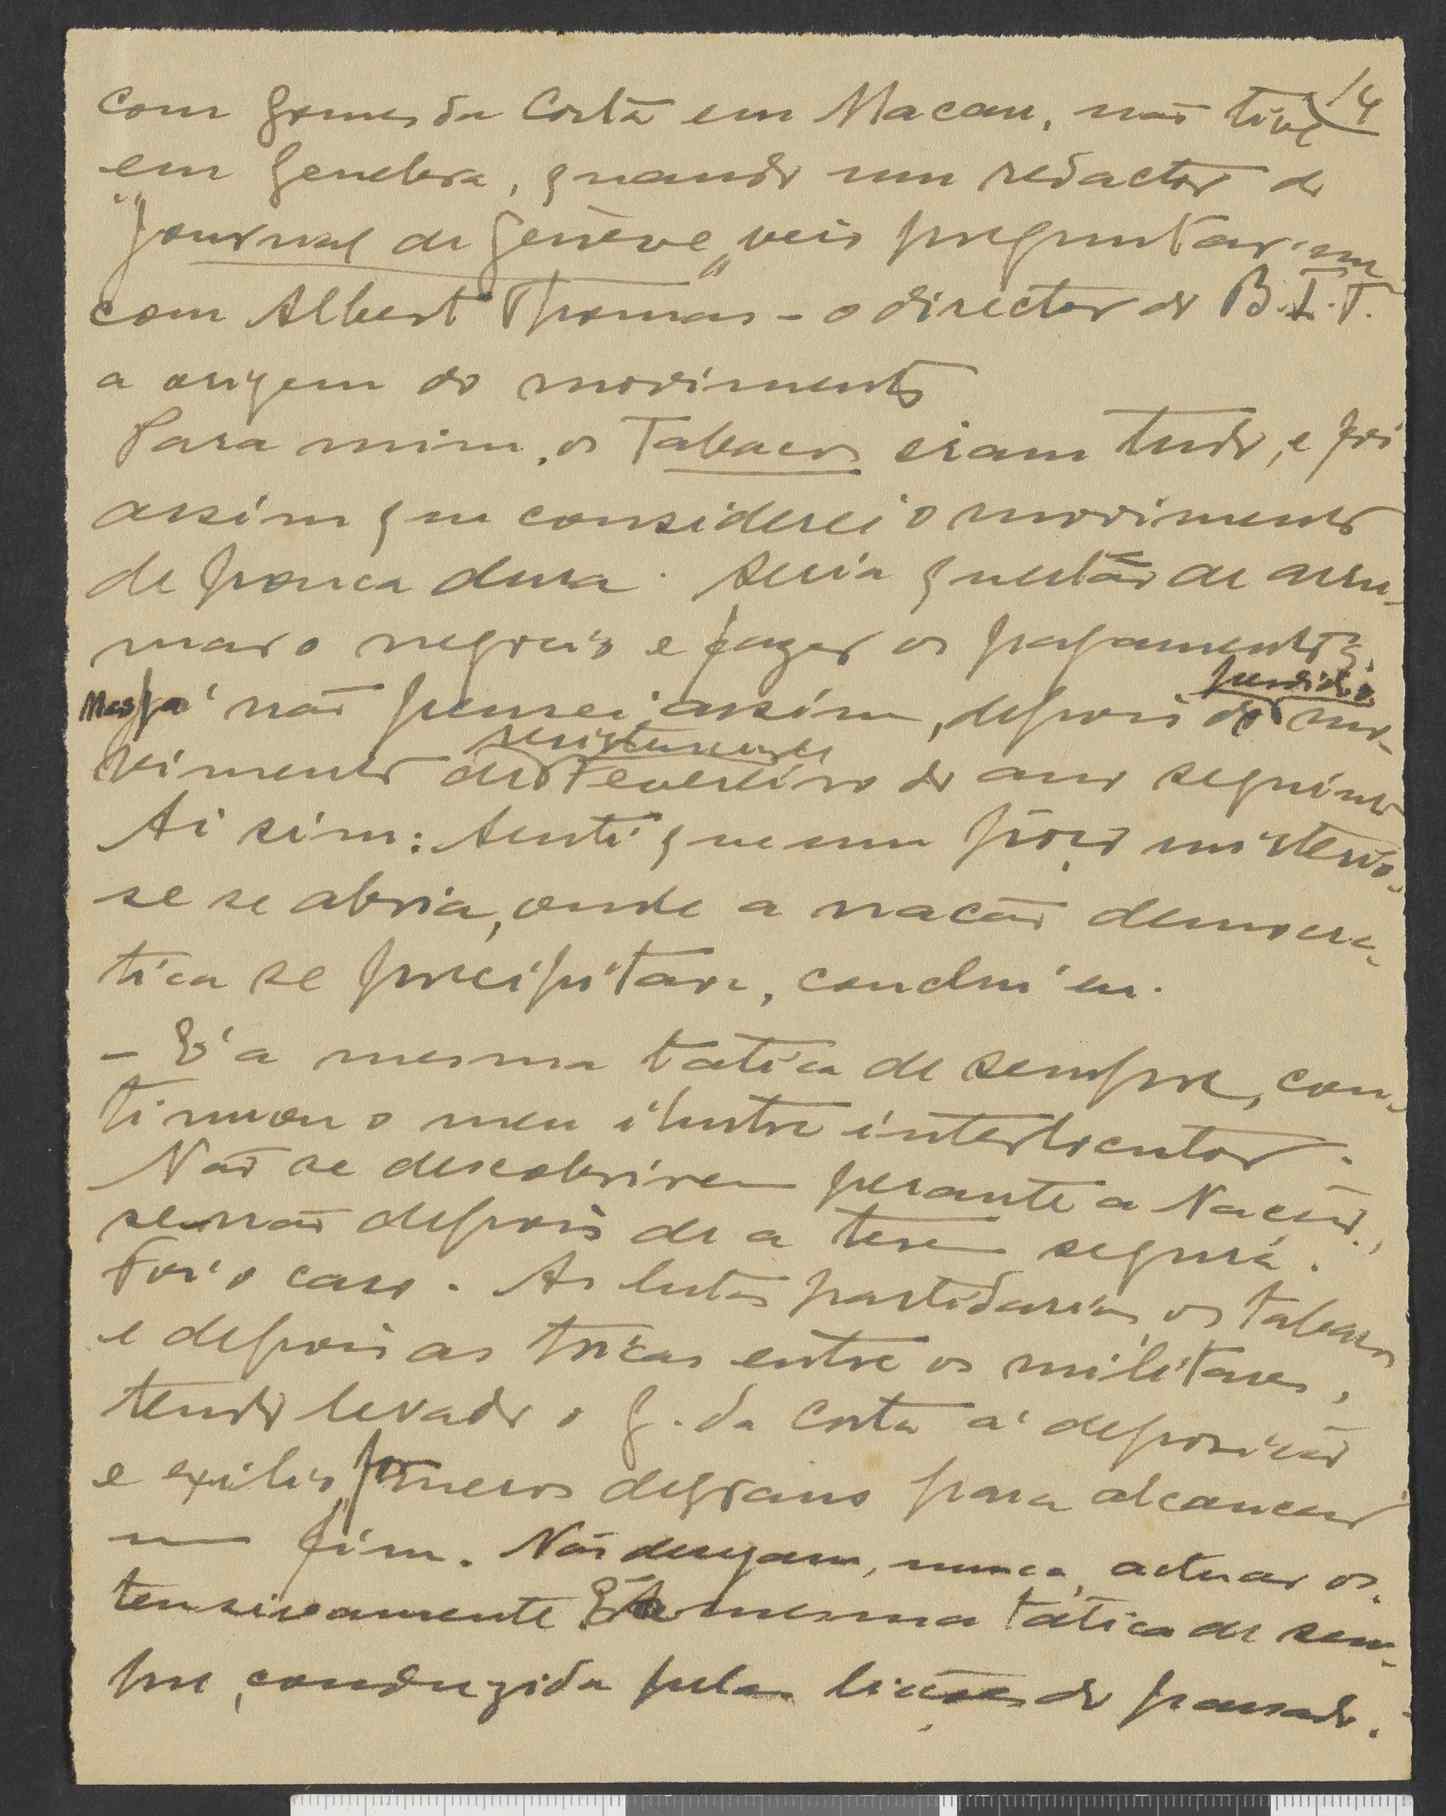 14
com Gomes da Costa em Macau, não tive
em Genebra, quando um redactor do
"Journal de Genève" veio preguntar-me
com Albert Thomas - o director do B.I.T.
a origem do movimento
Para mim, os Tabacos eram tudo, e foi
assim que considerei o movimento
de pouca dura. Seria questão de arru-
mar o negocio e fazer os pagamentos.
Mas já não pensei assim, depois de perdido o mo-
vimento de Fevereiro do ano seguinte
Ai sim: Senti que um poço misterio-
se se abria, onde a nação democra-
tica se precipitara, conclui eu.
- É a mesma tatica de sempre, con-
tinuou o meu ilustre interlocutor.
Não se descobrirem perante a Nação,
senão depois de a terem segura.
Foi o caso. As lutas partidarias, os tabacos
e depois as tricas entre os militares,
tendo levado o G. da Costa á deposição
e exilio, foram meros degraus para alcançar
um fim. Não desejam, nunca, actuar os-
tensivamente É a mesma tática de sem-
pre, conduzida pelas lições do passado.